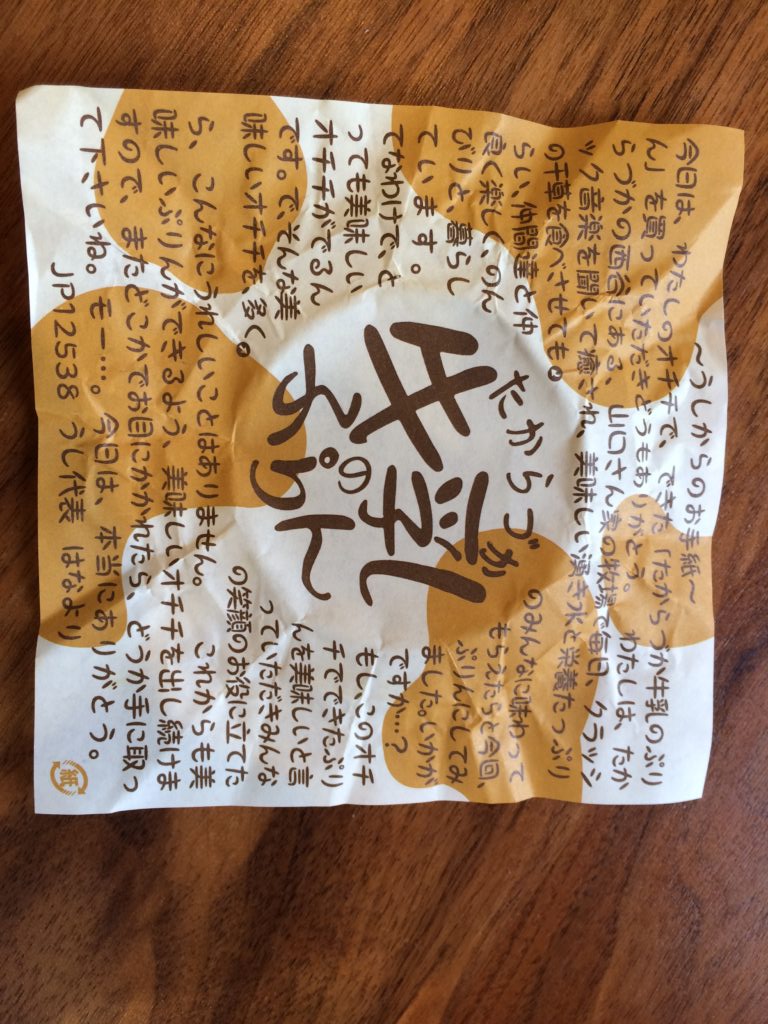 ～うしからのお手紙～
今日は、わたしのオチチで、できた「たからづか牛乳のぷり
ん」を買っていただきどうもありがとう。 わたしは、たか
らづかの西谷にある、山口さん家の牧場で毎日、クラッシ
ック音楽を聞いて癒され、美味しい湧き水と栄養たっぷり
の干草を食べさせても。
らい、仲間達と仲
良く楽しく、のん
びりと、暮らし
ています。
てなわけで、と
っても美味しい
オチチがでるん
です。で、そんな美
味しいオチチを、多く。
たからづか
牛乳
の
ぷりん
のみんなに味わって
もらえたらと今回、
ぷりんにしてみ
ました。いかが
ですか…？
もし、このオチ
チでできたぷり
んを美味しいと言
っていただきみんな
の笑顔のお役に立てた
ら、こんなにうれしいことはありません。 これからも美
味しいぷりんができるよう、美味しいオチチを出し続けま
すので、またどこかでお目にかかれたら、どうか手に取っ
て下さいね。モー…。今日は、本当にありがとう。
JP12538 うし代表 はなより
紙